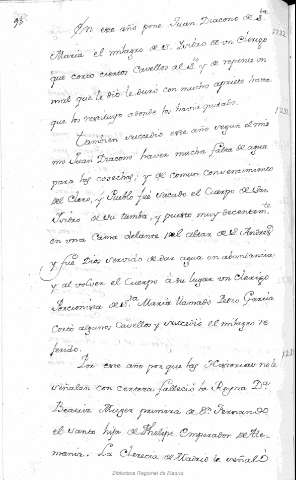 93
En este año pone Juan Diacono de S.ta
1232
Maria el milagro de S. Isidro de un Clerigo
que corto ciertos Cavellos al S.to y de repente un
mal que le dio le duro con mucho aprieto hasta
que los restituyo adonde los havia quitado.
Tambien sucedio este año segun el mis
mo Juan Diacono haver mucha falta de agua
para las cosechas; y de comun consentimiento
del Clero, y Pueblo fue sacado el Cuerpo de San
Isidro de su tumba, y puesto muy decentem.te
en una Cama delante del altar de S. Andres
y fue Dios servido de dar agua en abundancia
y al volver el Cuerpo a su lugar un Clerigo
Porcionero de S.ta Maria llamado Pedro Garcia
corto algunos Cavellos y sucedio el milagro re
ferido.
Por este año por que las Historias no lo
señalan con certeza fallecio la Reyna D.a
Beatriz Muger primera de D.n Fernando
el Santo hija de Phelipe Emperador de Ale
mania. La Clerecia de Madrid la señalo
Biblioteca Regional de Madrid